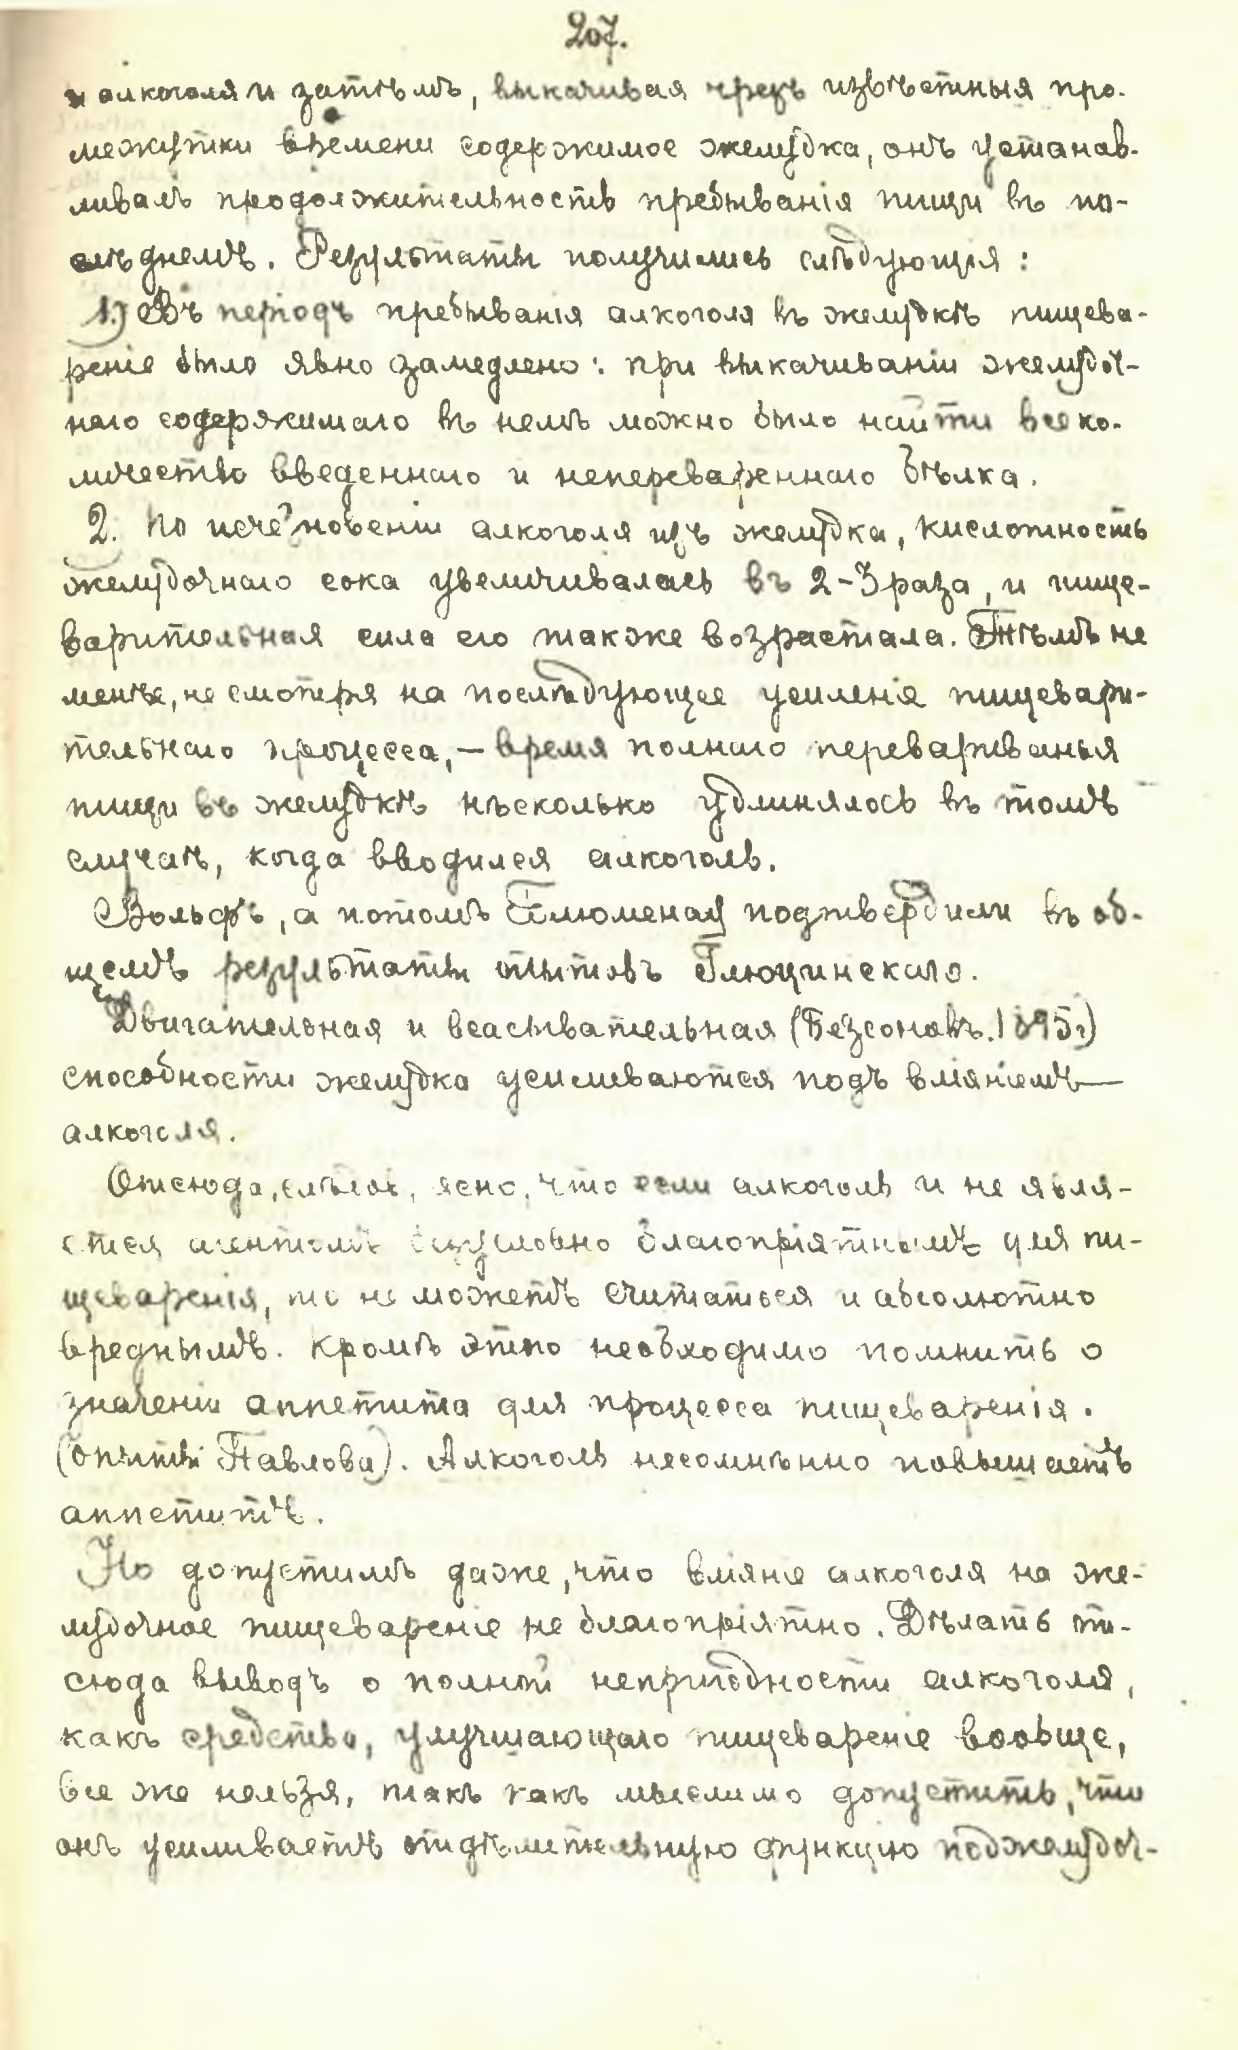 207.
и алкоголя и затѣмъ, выкачивая чрезъ извѣстныя про-
межутки времени содержимое желудка, онъ устанав-
ливалъ продолжительность пребыванія пищи въ по-
слѣднемъ. Результаты получились слѣдующія:
1.) Въ періодъ пребыванія алкоголя въ желудкѣ пищева-
реніе было явно замедлено: при выкачиваніи желудоч-
наго содержимаго въ немъ можно было найти все ко-
личество введеннаго и неперевареннаго бѣлка.
2. По исчезновеніи алкоголя изъ желудка, кислотность
желудочнаго сока увеличивалась въ 2-3 раза, и пище-
варительная сила его также возрастала. Тѣмъ не
менѣе, не смотря на послѣдующее усиленіе пищевари-
тельнаго процесса, — время полнаго перевариванья
пищи въ желудкѣ нѣсколько удлинялось въ томъ
случаѣ, когда вводился алкоголь.
Вольфъ, а потомъ Блюменау подтвердили въ об-
щемъ результаты опытовъ Глюцинскаго.
Двигательная и всасывательная (Безсоновъ. 1895г)
способности желудка усиливаются подъ вліяніемъ
алкоголя.
Отсюда, ясно, что если алкоголь и не явля-
ется агентомъ безусловно благопріятнымъ для пи-
щеваренія, то не можетъ считаться и абсолютно
вреднымъ. Кромѣ этого необходимо помнить о
значеніи аппетита для процесса пищеваренія.
(опыты Павлова). Алкоголь несомнѣнно повышаетъ
аппетитъ.
Но допустимъ даже, что вліяніе алкоголя на же-
лудочное пищевареніе не благопріятно. Дѣлать от-
сюда выводъ о полной непригодности алкоголя,
какъ средства, улучшающаго пищевареніе вообще,
все же нельзя, такъ какъ мыслимо допустить, что
онъ усиливаетъ отдѣлительную функцію поджелудоч-